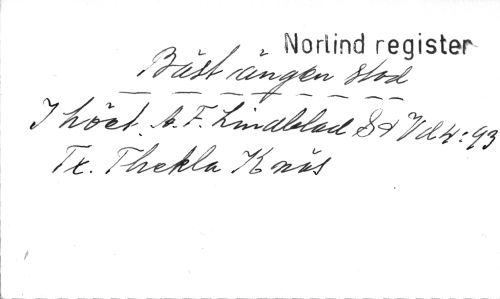 Norlind register
Bäst ängen stod
I höst. av F. Lindblad S d V d 4:93
Tx. Thekla Knös